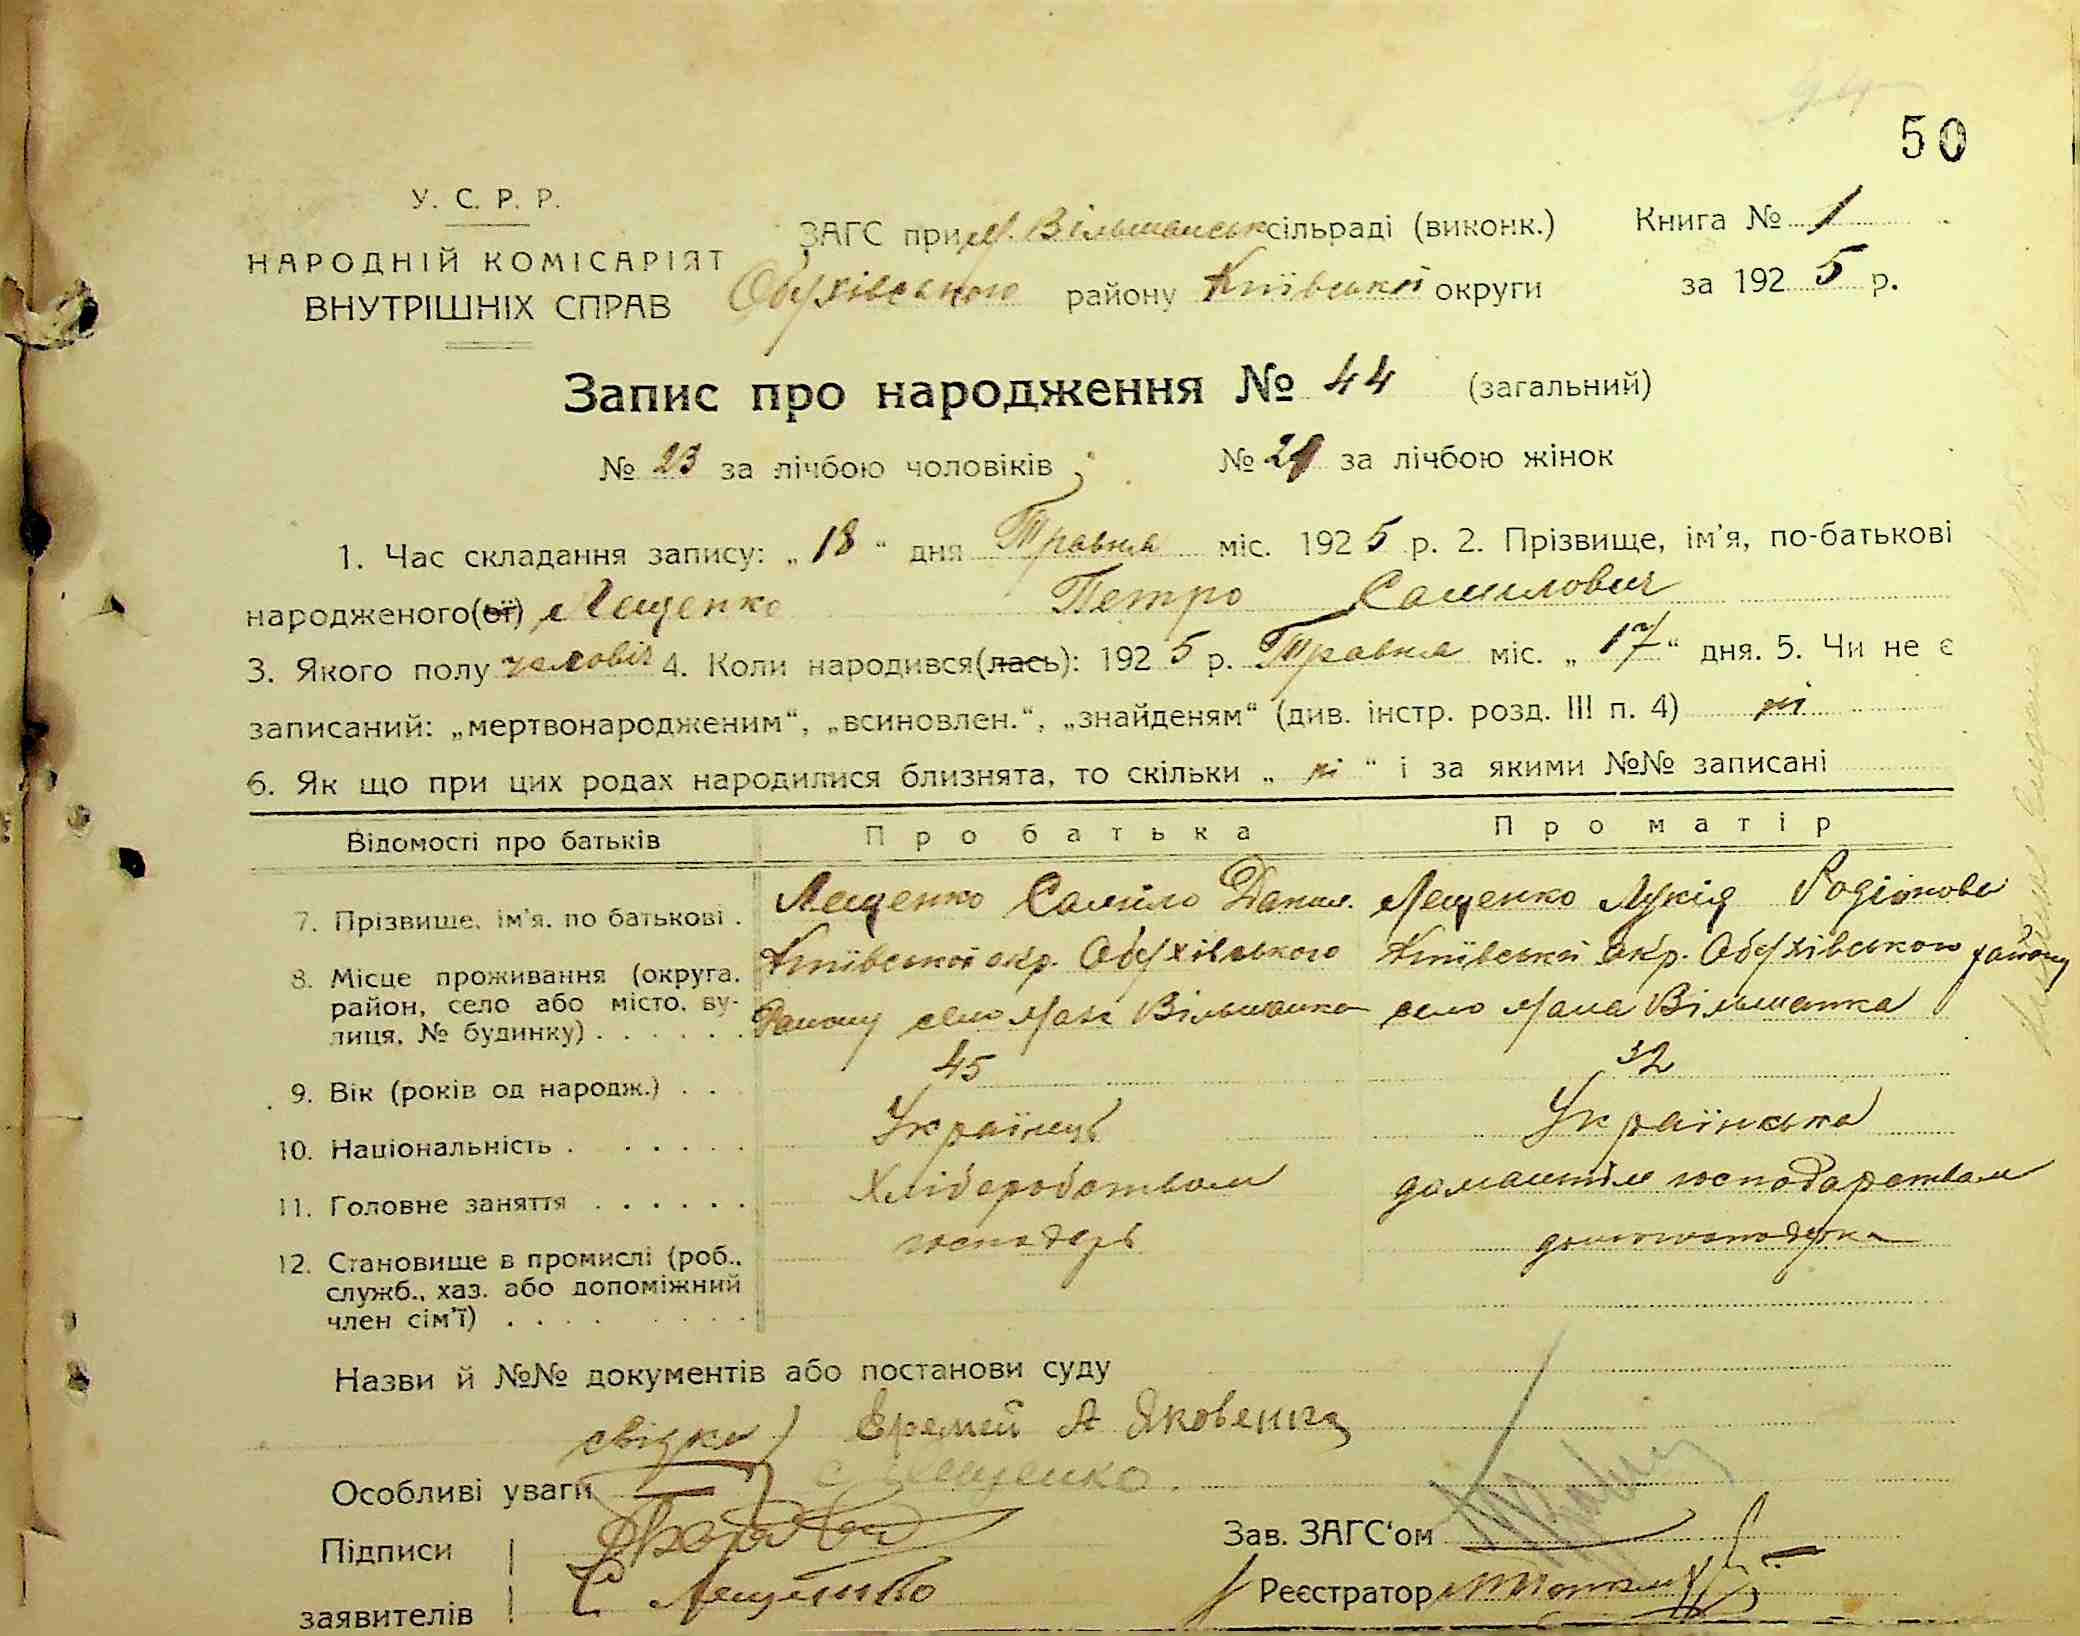 50
У. С. Р. Р.
НАРОДНІЙ КОМІСАРІЯТ
ВНУТРІШНІХ СПРАВ
ЗАГС при М. Вільшанськ сільраді (виконк.)
Обухівського району Київської округи
Книга № 1
за 1925 р.
Запис про народження № 44 (загальний)
№ 23 за лічбою чоловіків № 21 за лічбою жінок
1. Час складання запису: „18“ дня Травня міс. 1925 р. 2. Прізвище, ім'я, по-батькові
народженого(ої) Лещенко Петро Самилович
3. Якого полу чоловіч 4. Коли народився(лась): 1925 р. Травня міс. „17“ дня. 5. Чи не є
записаний: „мертвонародженим“, „всиновлен.“, „знайденям“ (див. інстр. розд. III п. 4) ні
6. Як що при цих родах народилися близнята, то скільки „ні“ і за якими №№ записані
Відомості про батьків Про батька Про матір
7. Прізвище, ім'я, по батькові. Лещенко Самійло Данил. Лещенко Лукія Родіонова
8. Місце проживання (округа, район, село або місто, вулиця, № будинку) Київської окр. Обухівського Київської окр. Обухівського району
Району село Мала Вільшанка село Мала Вільшанка
9. Вік (років од народж.) 45 32
10. Національність Українець Українська
11. Головне заняття Хліборобством домашнім господарством
12. Становище в промислі (роб., служб., хаз. або допоміжний член сім'ї) господарь домогосподарка
Назви й №№ документів або постанови суду
свідки) Еремей А Яковенко
Особливі уваги С Лещенко
Підписи
заявителів С Лещенко
Зав. ЗАГС‘ом
Реєстратор